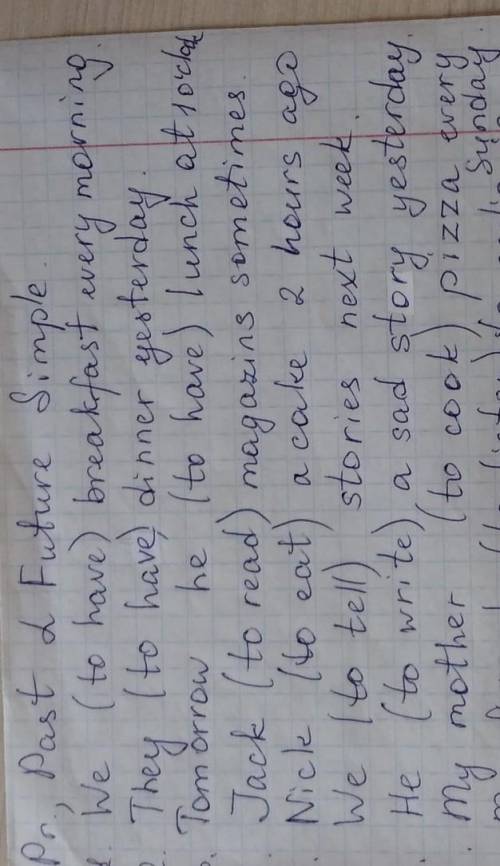 Pr., Past & Future Simple.
We (to have) breakfast every morning.
They (to have) dinner yesterday.
Tomorrow he (to have) lunch at 1 o'clock
Jack (to read) magazins sometimes.
Nick (to eat) a cake 2 hours ago
We (to tell) stories next week.
He (to write) a sad story yesterday.
My mother (to cook) pizza every
Sunday.